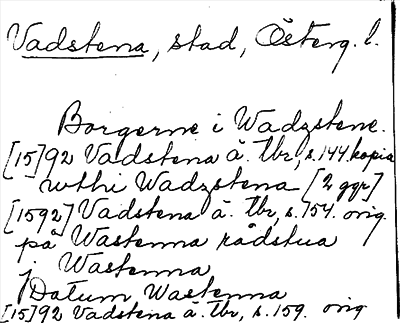 Vadstena, stad, Österg. l.
Borgerne i Wadzstene.
[15]92 Vadstena ä. tbr, s. 144 kopia
wthi Wadzstena [2 ggr]
[1592] Vadstena ä. tbr, s. 154. orig.
på Wastenna rådstua
i Wastenna
Datum Wastenna
[15]92 Vadstena ä. tbr, s. 159. orig